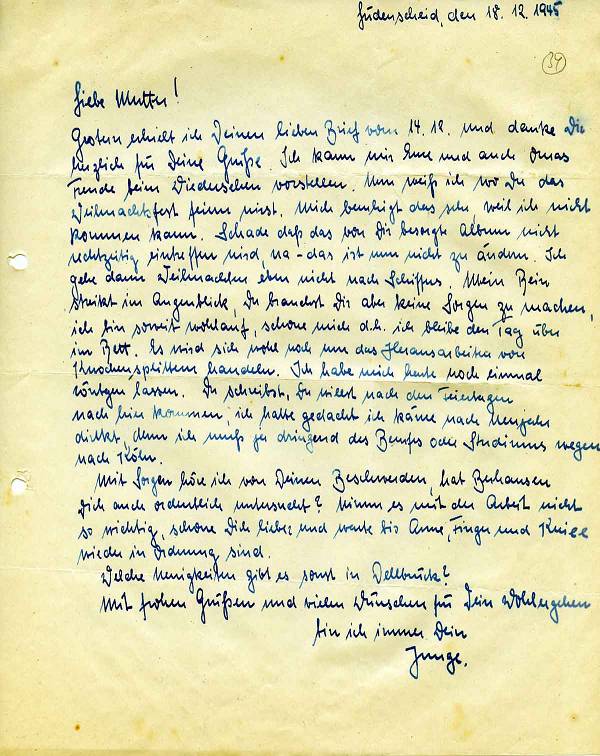 Lüdenscheid, den 18. 12. 1945
39
Liebe Mutter!
Gestern erhielt ich Deinen lieben Brief vom 14.12. und danke Dir
herzlich für Deine Grüße. Ich kann mir Eure und auch Omas
Freude beim Wiedersehen vorstellen. Nun weiß ich wo Du das
Weihnachtsfest feiern wirst. Mich beruhigt das sehr, weil ich nicht
kommen kann. Schade daß das von Dir besorgte Album nicht
rechtzeitig eintreffen wird, na - das ist nun nicht zu ändern. Ich
gehe dann Weihnachten eben nicht nach Schiffers. Mein Bein
streikt im Augenblick, Du brauchst Dir aber keine Sorgen zu machen,
ich bin soweit wohlauf, schone mich d.h. ich bleibe den Tag über
im Bett. Es wird sich wohl noch um das Herausarbeiten von
Knochensplittern handeln. Ich habe mich heute noch einmal
röntgen lassen. Du schreibst, Du willst nach den Feiertagen
nach hier kommen, ich hatte gedacht ich käme nach Neujahr
direkt, denn ich muß ja dringend des Berufes oder Studiums wegen
nach Köln.
Mit Sorgen höre ich von Deinen Beschwerden, hat
Dich auch ordentlich untersucht? Nimm es mit der Arbeit nicht
so wichtig, schone Dich lieber und warte bis Arme, Finger und Knie
wieder in Ordnung sind.
Welche Neuigkeiten gibt es sonst in Dellbrück?
Mit frohen Grüßen und vielen Wünschen für Dein Wohlergehen
bin ich immer Dein
Junge.